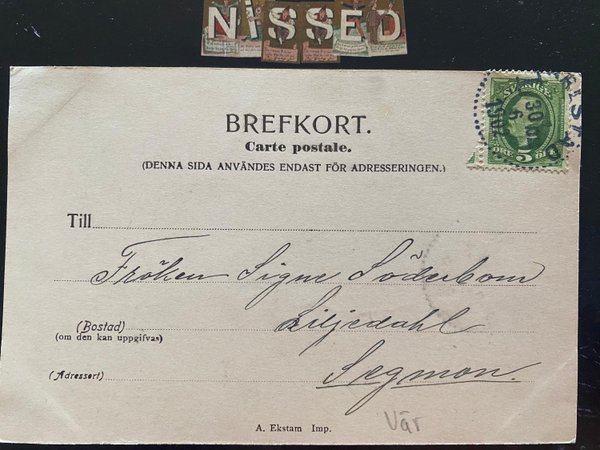 NISSED
BREFKORT.
Carte postale.
(DENNA SIDA ANVÄNDES ENDAST FÖR ADRESSERINGEN.)
Till
Fröken Signe Söderbom
(Bostad)
(om den kan uppgifvas)
Liljedahl
(Adressort)
Segmon.
A. Ekstam Imp.
Vär